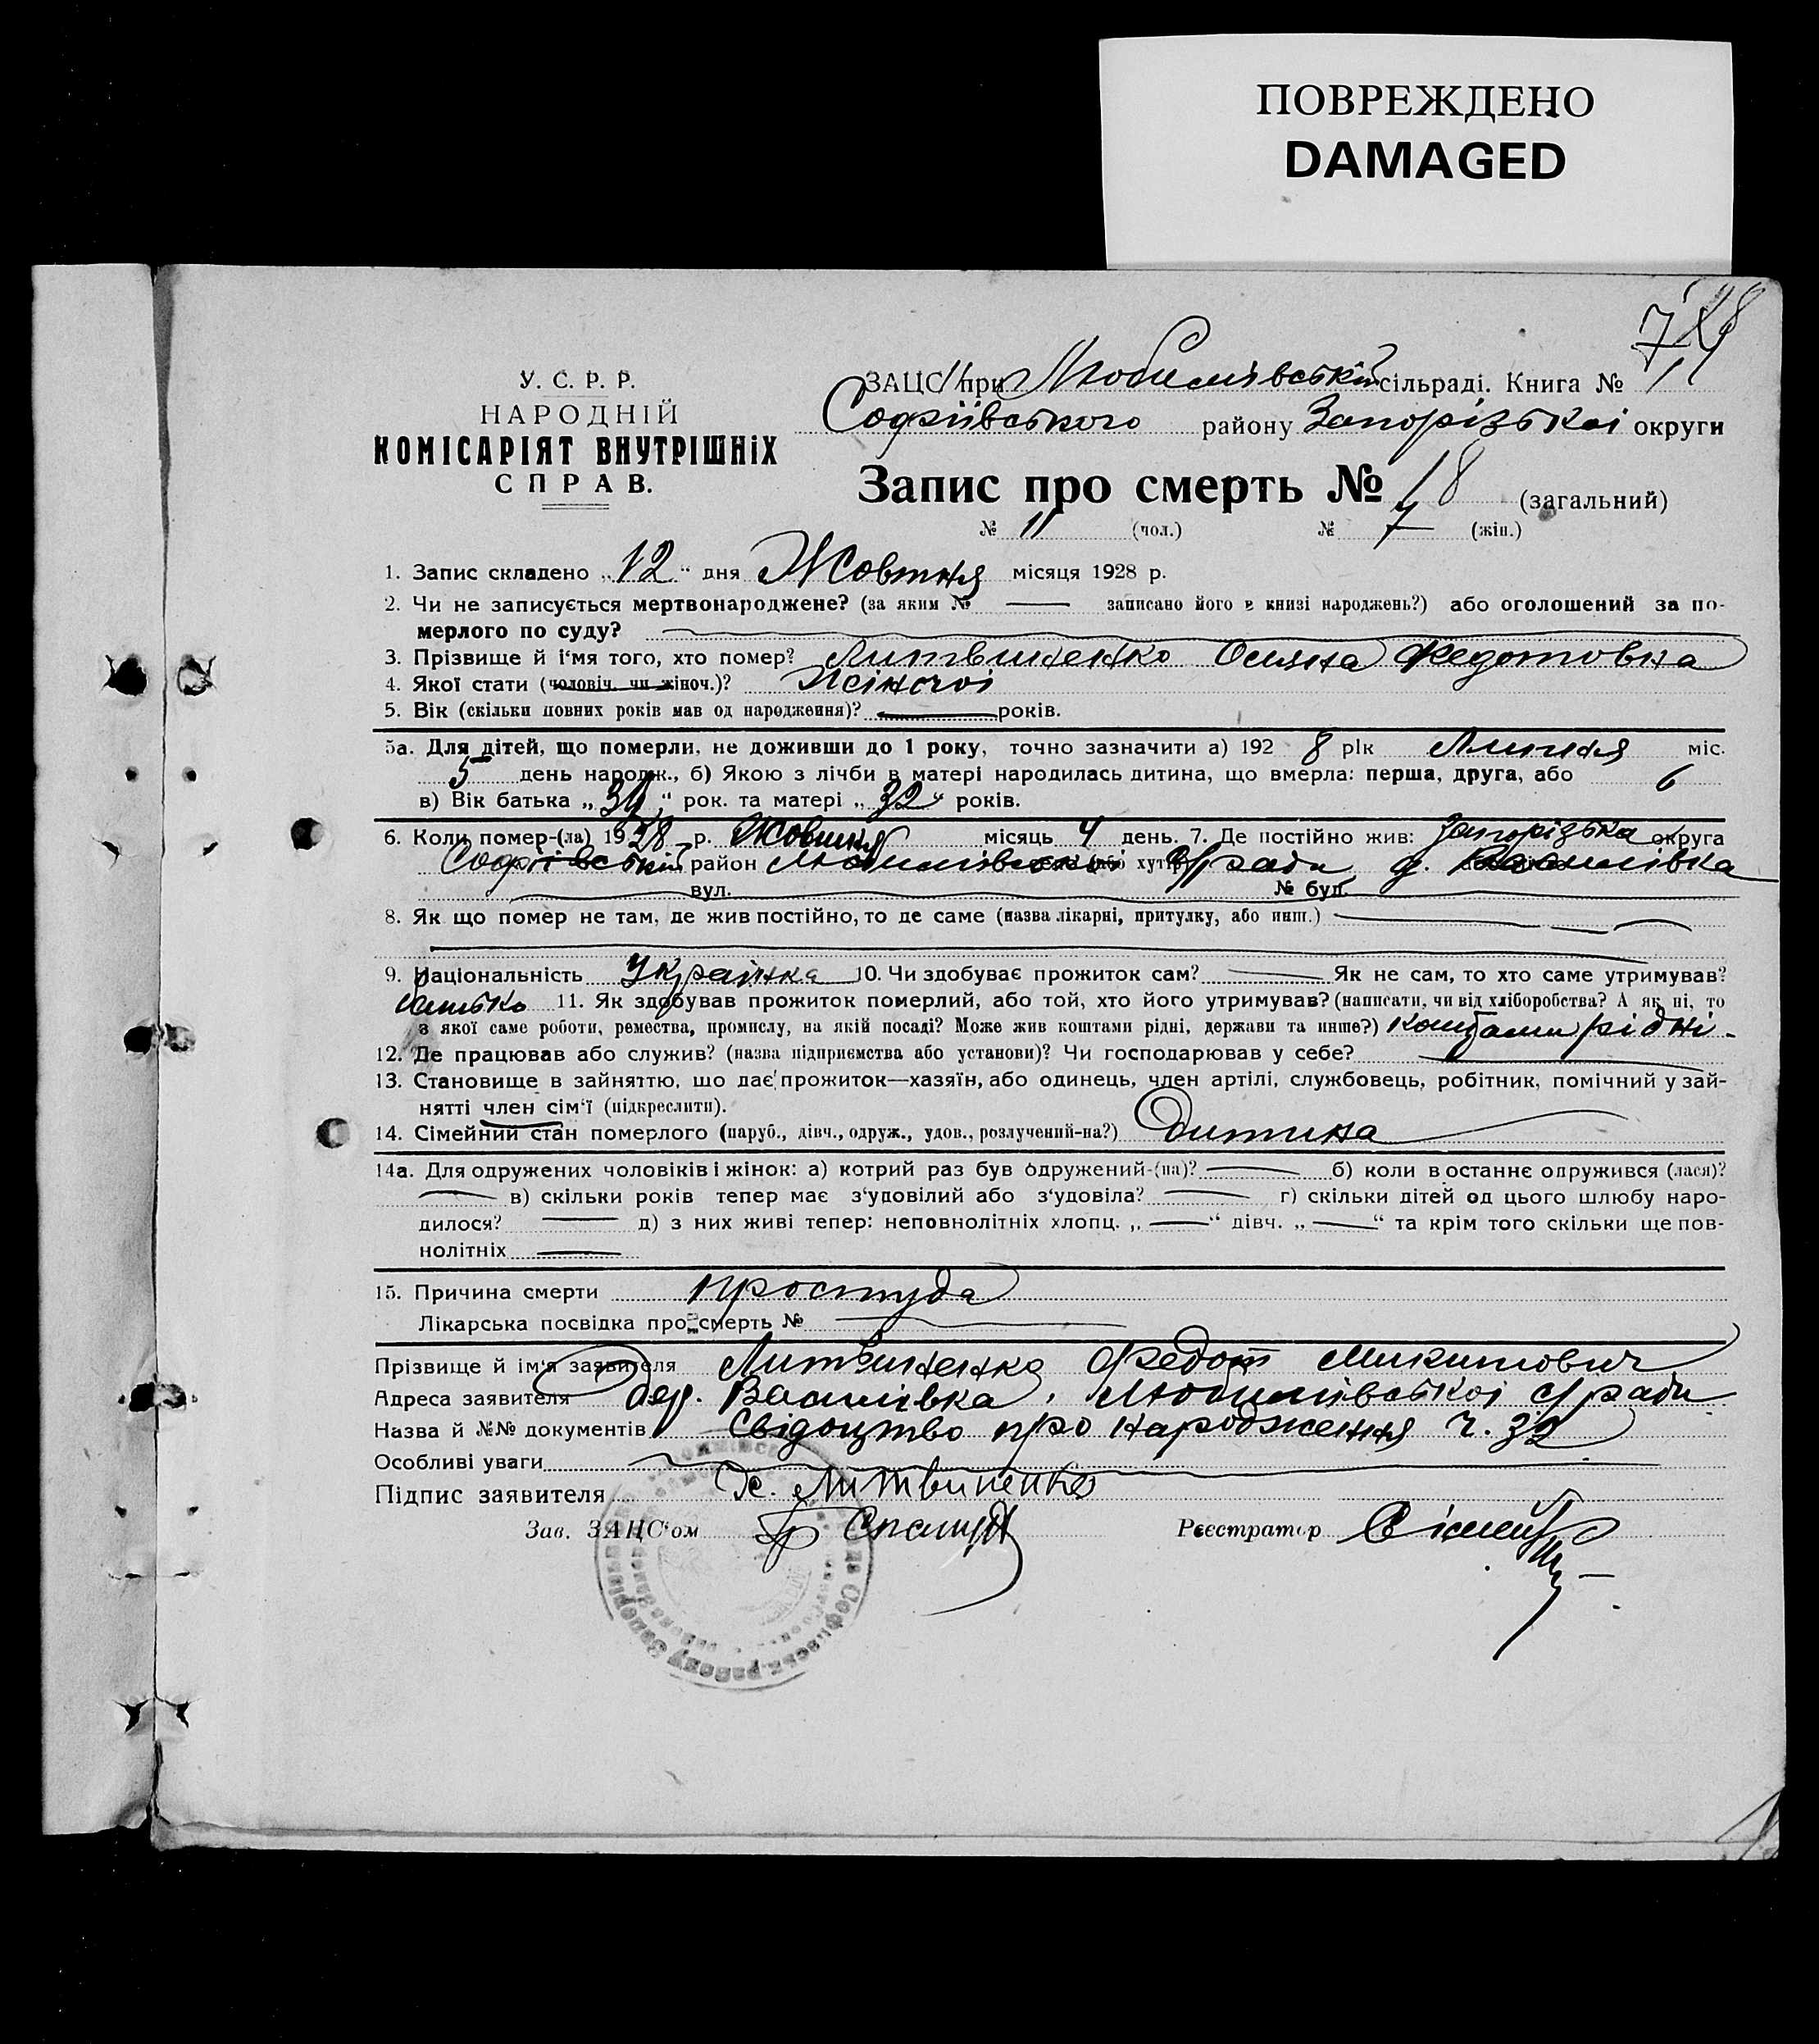 ПОВРЕЖДЕНО
DAMAGED
У. С. Р. Р.
НАРОДНІЙ
КОМІСАРІЯТ ВНУТРІШНІХ
СПРАВ.
ЗАЦС при Любимівській сільраді. Книга № 1
Софіївського району Запорізької округи
Запис про смерть № 18 (загальний)
№ 11 (чол.) № 7 (жін.)
1. Запис складено „12“ дня Жовтня місяця 1928 р.
2. Чи не записується мертвонароджене? (за яким № — записано його в книзі народжень?) або оголошений за по-
мерлого по суду?
3. Прізвище й і‘мя того, хто помер? Литвиненко Федотовна
4. Якої стати (чоловіч. чи жіноч.)? Жіночої
5. Вік (скільки повних років мав од народження)? — років.
5а. Для дітей, що померли, не доживши до 1 року, точно зазначити а) 192 8 рік Липня міс.
5 день народж., б) Якою з лічби в матері народилась дитина, що вмерла: перша, друга, або 6
в) Вік батька „34“ рок. та матері „32“ років.
6. Коли помер-(ла) 1928 р. Жовтня місяць 4 день. 7. Де постійно жив: Запорізька округа
Софіївський район Любимівської с/ради д. Василівка
вул. № буд.
8. Як що помер не там, де жив постійно, то де саме (назва лікарні, притулку, або инш.) —
9. Національність Українка 10. Чи здобуває прожиток сам? — Як не сам, то хто саме утримував?
батько 11. Як здобував прожиток померлий, або той, хто його утримував? (написати, чи від хліборобства? А як ні, то
з якої саме роботи, ремества, промислу, на якій посаді? Може жив коштами рідні, держави та инше?) коштами рідні
12. Де працював або служив? (назва підприємства або установи)? Чи господарював у себе? —
13. Становище в зайняттю, що дає прожиток—хазяїн, або одинець, член артілі, службовець, робітник, помічний у зай-
нятті член сім‘ї (підкреслити).
14. Сімейний стан померлого (паруб., дівч., одруж., удов., розлучений-на?) Дитина
14а. Для одружених чоловіків і жінок: а) котрий раз був одружений-(на)? — б) коли востаннє одружився (лася)?
— в) скільки років тепер має з‘удовілий або з‘удовіла? — г) скільки дітей од цього шлюбу наро-
дилося? — д) з них живі тепер: неповнолітніх хлопц. „—“ дівч. „—“ та крім того скільки ще пов-
нолітніх —
15. Причина смерти простуда
Лікарська посвідка про смерть № —
Прізвище й ім‘я заявителя Литвиненко Федот Микитович
Адреса заявителя дер. Василівка, Любимівської с/ради
Назва й №№ документів Свідоцтво про народження ч. 32
Особливі уваги
Підпис заявителя Литвиненко
Зав. ЗАЦС‘ом
Реєстратор